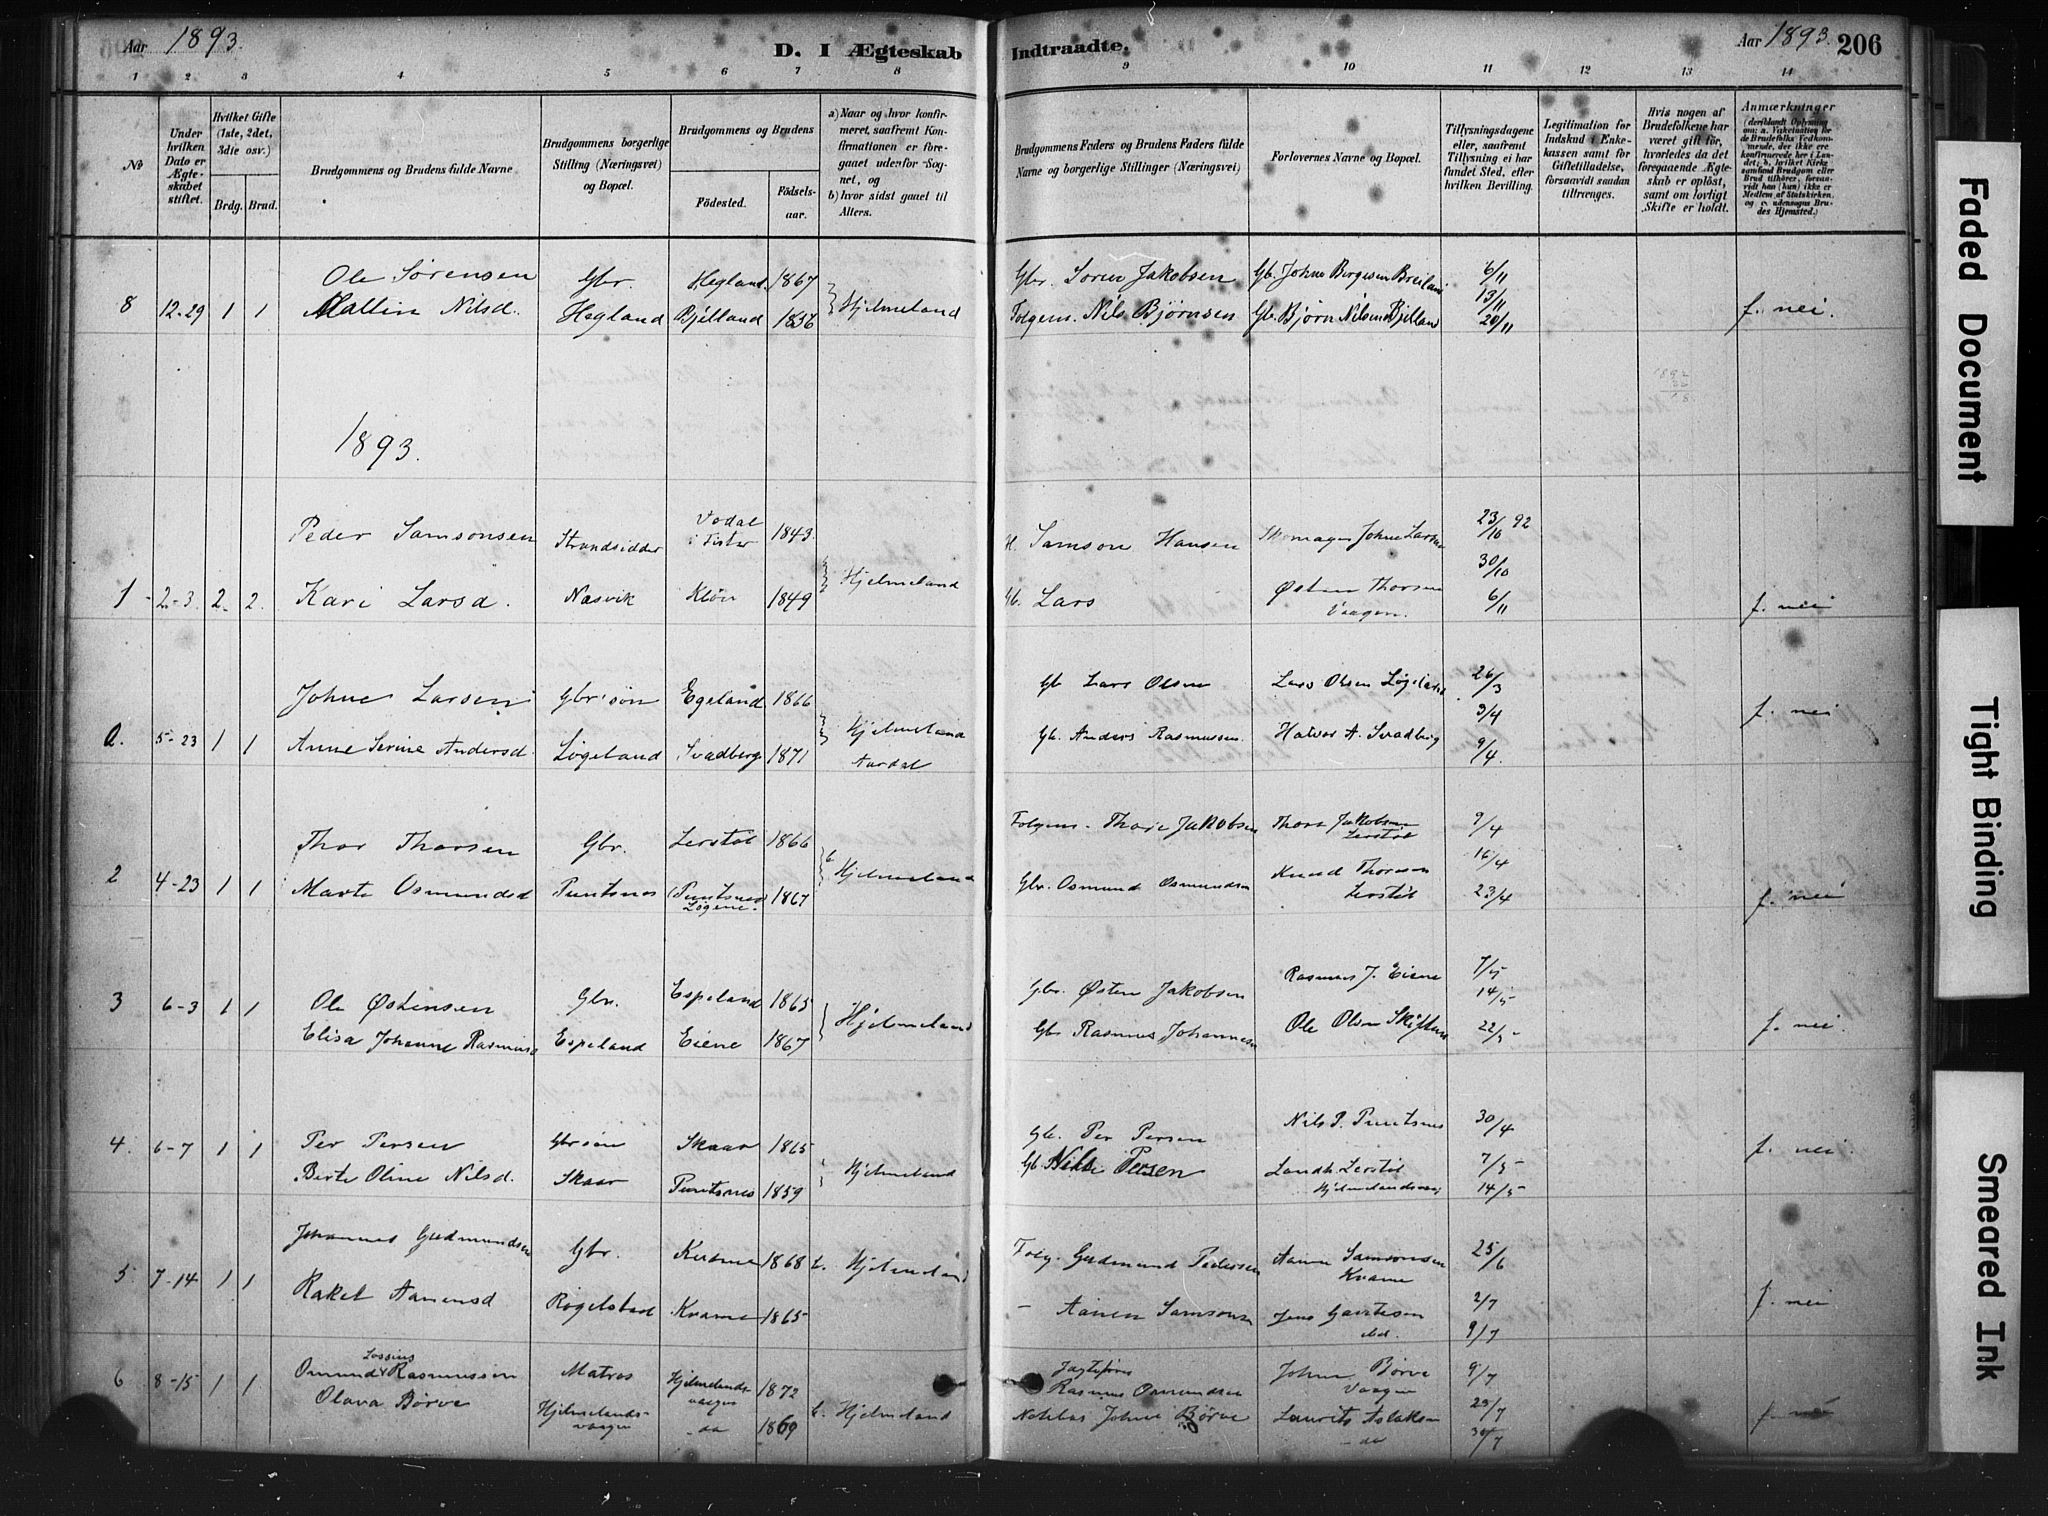 Aar 1893.
D. I Ægteskab Indtraadte.
Aar 1893. 206
1 2 3 4 5 6 7 8 9 10 11 12 13 14
No
Under hvilken Dato er Ægteskabet stiftet.
Hvilket Gifte (1ste, 2det, 3die osv.)
Brdg. Brud.
Brudgommens og Brudens fulde Navne
Brudgommens borgerlige Stilling (Næringsvei) og Bopæl.
Brudgommens og Brudens
Födested.
Födselsaar.
a) Naar og hvor konfirmeret, saafremt Konfirmationen er foregaaet udenfor Sognet, og
b) hvor sidst gaaet til Alters.
Brudgommens Faders og Brudens Faders fulde Navne og borgerlige Stillinger (Næringsvei)
Forlovernes Navne og Bopæl.
Tillysningsdagene eller, saafremt Tillysning ei har fundet Sted, efter hvilken Bevilling.
Legitimation for Indskud i Enkekassen samt for Giftetilladelse, forsaavidt saadan tiltrænges.
Hvis nogen af Brudefolkene har været gift før, hvorledes da det foregaaende Ægteskab er opløst, samt om lovligt Skifte er holdt.
Anmærkninger
(deriblandt Oplysning om: a. Vakcination for de Brudefolks Vedkommende, der ikke ere konfirmerede her i Landet; b. hvilket Kirkesamfund Brudgom eller Brud tilhører, forsaavidt han (hun) ikke er Medlem af Statskirken, og c. udensogns Brudes Hjemsted.)
Ole Sørensen Gbr. Hegland 1867 Gbr. Søren Jakobsen Gb. Johne Bergesen Breiland 6/11
8 12-29 1 1 Mallin Nilsd. Hegland Bjelland 1836 Hjelmeland Folgem. Nils Bjørnsen Gb. Bjørn Nilsen Bjelland 13/11 20/11 f. nei.
1893.
Peder Samsonsen Strandsidder 1843 Samson Hansen Skomager Johne Larsen 23/10 92
30/10
1 2-3. 2. 2. Kari Larsd. Næsvik Kløn 1849 Hjelmeland Gb. Lars Østen Thorsen Vaagen. 6/11 f. nei
Johne Larsen Gbr søn Egeland 1866 Gb Lars Olsen Lars Olsen Løgeland 26/3
3/4
5-23 1 1 Anne Serine Andersd. Løgeland Svadberg 1871 Hjelmeland Aardal Gb. Anders Rasmussen Halvor A. Svadberg 9/4. f. nei
Thor Thorsen Gbr. Lerstøl 1866 Folgem. Thore Jakobsen Thore Jakobsen Lerstøl 9/4
16/4
2 4-23 1 1 Marte Osmundsd Puntsnes Puntsnes 1867 Hjelmeland Gbr. Osmund Osmundsen Knud Thorsen Lerstøl 23/4 f. nei
3 6-3 1 1 Ole Østensen Gbr. Espeland 1865 Gbr. Østen Jakobsen Rasmus J. Eiene 7/5
14/5
Elisa Johanne Rasmusd Espeland Eiene 1867 Hjelmeland Gbr Rasmus Johannesen Ole Olsen Skiftun 22/5 f. nei
4. 6-7 1 1 Per Persen Gbr søn Skaar 1865 Gb. Per Persen Nils P. Puntsnes 30/4
Berte Oline Nilsd. Skaar Puntsnes 1859 Hjelmeland Gb Nils Persen Landh. Lerstøl Hjelmelandsvaag 7/5 14/5 f. nei.
Johannes Gudmundsen Gbr. Kvame 1868 b. Hjelmeland Folg. Gudmund Pedersen Aanen Samsonsen Kvame 25/6
5 7-14 1 1 Rakel Aanensd Røgelstad Kvame 1865 - Aanen Samsonsen Jens Gautesen 2/7 9/7 f. nei
6 8-15 1 1 Osmund Lossius Rasmussen Matros Hjelmelandsvaagen 1872 Rasmus Osmundsen Johne Børve Vaagen 9/7
Olava Børve Hjelmelandsvaagen -aa 1869 b. Hjelmeland Johne Børve Laurits Aslaksen - aa 23/7 30/7 f. nei
Faded Document
Tight Binding
Smeared Ink